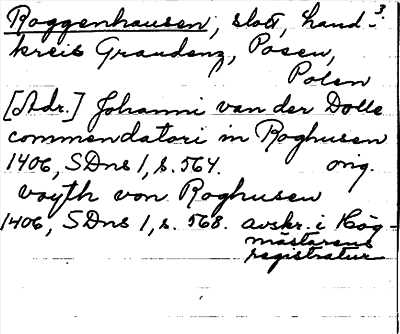 Roggenhausen, slott, land- 3.
kreis Graudenz, Posen,
Polen
[Adr.] Johanni van der Dolle
commendatori in Roghusen
1406, SDns 1, s. 564. orig.
voyth von Roghusen
1406, SDns 1, s. 568. avskr. i Hög-
mästarens
registratur